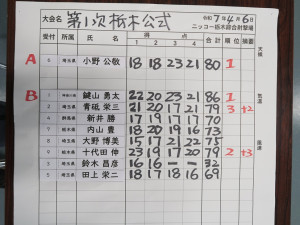 大会名 第1次栃木公式 令和7年4月6日
ニッコー栃木綜合射撃場
受付 所属 氏名 得点 1 2 3 4 合計 順位 摘要
A 6 埼玉県 小野 公敬 18 18 23 21 80 1
B 1 鍵山 勇太 22 20 23 21 86 1
3 埼玉県 青砥 栄三 21 20 17 21 79 3 +2
4 群馬県 新井 勝 17 19 17 17 70
7 栃木県 内山 豊 18 20 19 16 73
8 埼玉県 大野 博美 15 17 21 22 75
9 栃木県 十代田 伸 23 19 17 20 79 2 +3
3 鈴木 昌彦 16 16 — — 32
5 埼玉県 田上 栄二 18 17 18 16 69
天候
気温
風速